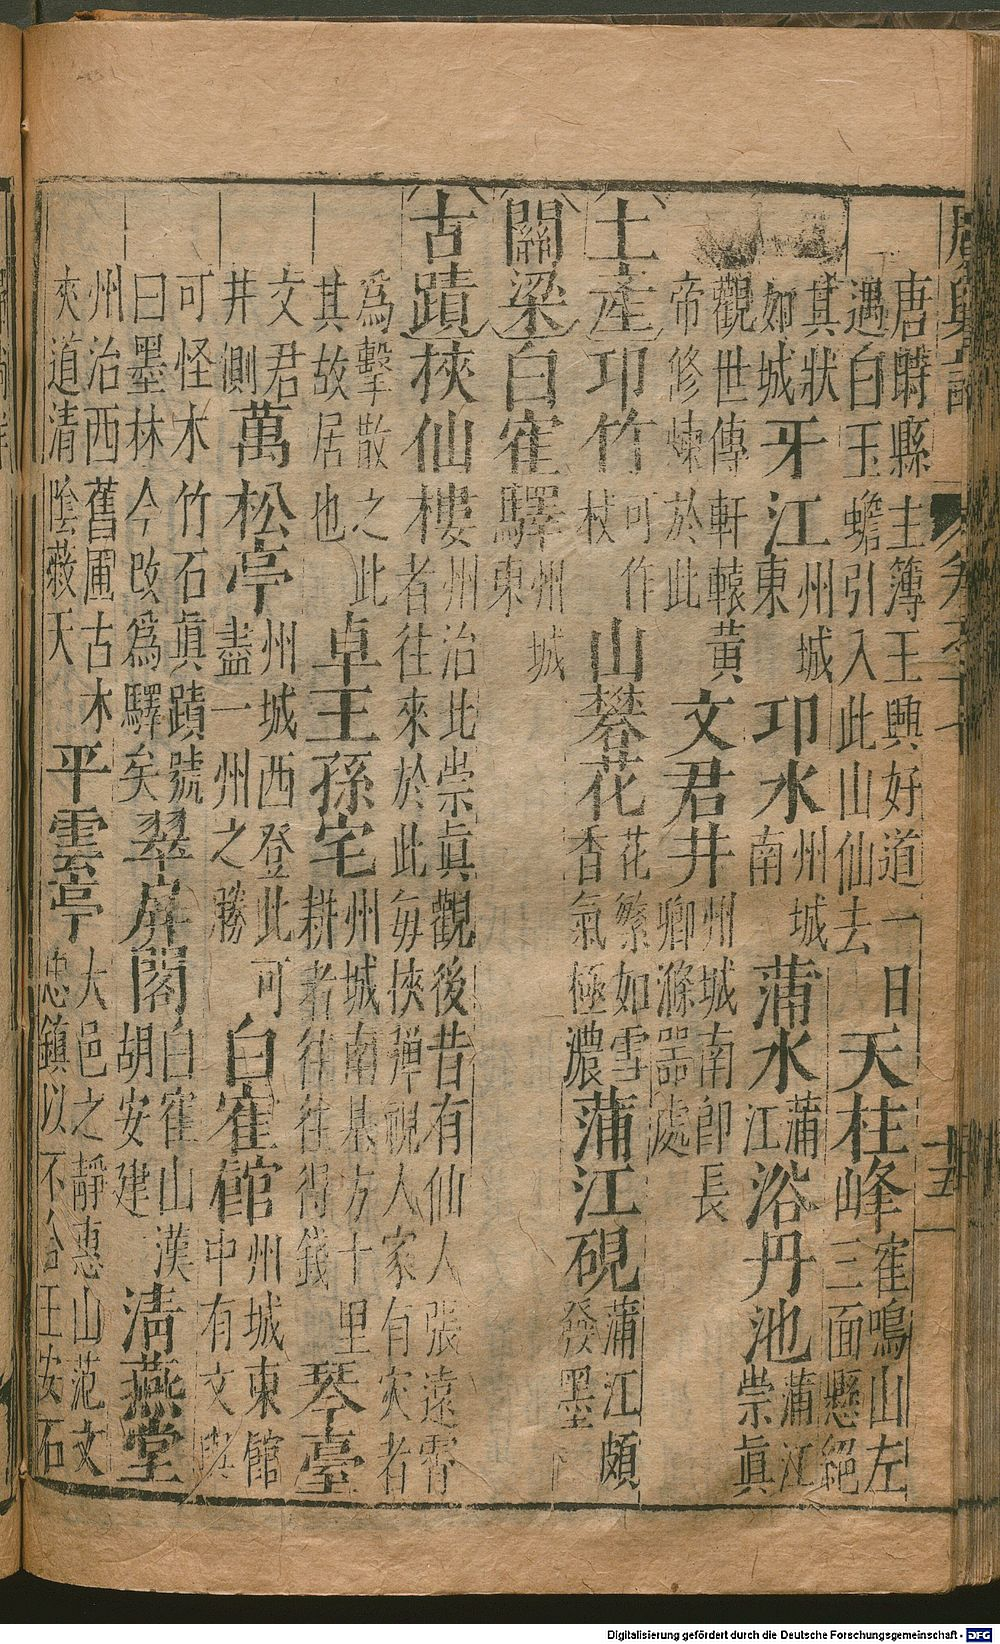 廣輿記 十五
唐時縣主簿王興好道一日遇白玉蟾引入此山仙去 天柱峰 隺鳴山左三面懸絕
其狀如城 牙江 州城東 邛水 州城南 蒲水 蒲江 浴丹池 蒲江崇眞
觀世傳軒轅黃帝修煉於此 文君井 州城南即長卿滌器處
土產 邛竹 可作杖 山礬花 花繁如雪香氣極濃 蒲江硯 蒲江頗發墨
關梁 白隺驛 州城東
古蹟 挾仙樓 州治北崇眞觀後昔有仙人張遠霄者往來於此每挾彈視人家有灾者
爲擊散之此其故居也 卓王孫宅 州城南基方十里耕者往往得錢 琴臺
文君井側 萬松亭 州城西登此可盡一州之勝 白隺館 州城東館中有文與
可怪木竹石眞蹟號曰墨林今改爲驛矣 翠屏閣 白隺山漢胡安建 清燕堂
州治西舊圃古木夾道清陰蔽天 平雲亭 大邑之靜惠山范文忠鎮以不合王安石
Digitalisierung gefördert durch die Deutsche Forschungsgemeinschaft - DFG